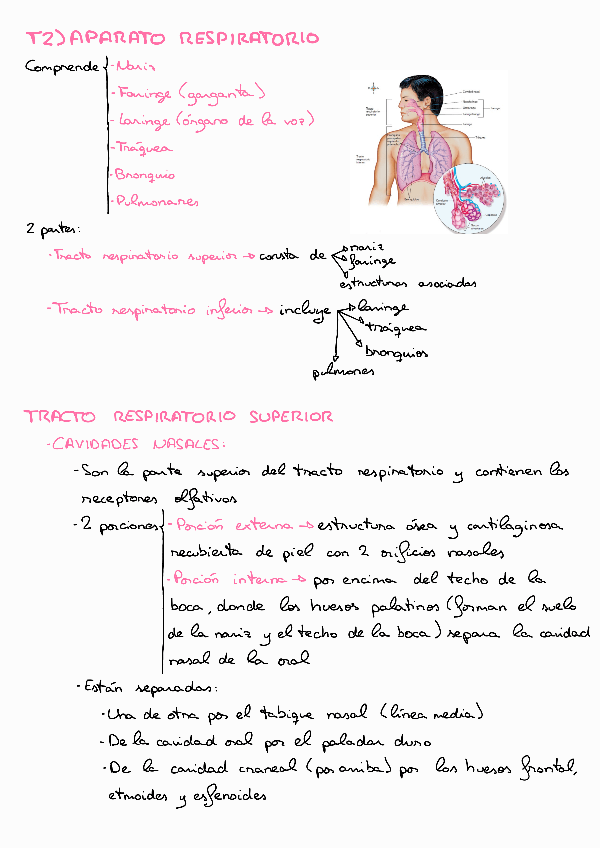 T2) APARATO RESPIRATORIO
Comprende - Nariz
- Faringe (garganta)
- Laringe (órgano de la voz)
- Tráquea
- Bronquio
- Pulmonares
2 partes:
· Tracto respiratorio superior → consta de → nariz
→ faringe
→ estructuras asociadas
- Tracto respiratorio inferior → incluye → laringe
→ tráquea
→ bronquios
pulmones
TRACTO RESPIRATORIO SUPERIOR
- CAVIDADES NASALES:
- Son la parte superior del tracto respiratorio y contienen los
receptores olfativos
- 2 porciones - Porción externa → estructura ósea y cartilaginosa
recubierta de piel con 2 orificios nasales
- Porción interna → por encima del techo de la
boca, donde los huesos palatinos (forman el suelo
de la nariz y el techo de la boca) separa la cavidad
nasal de la oral
- Están separadas:
· Una de otra por el tabique nasal (línea media)
- De la cavidad oral por el paladar duro
· De la cavidad craneal (por arriba) por los huesos frontal,
etmoides y esfenoides